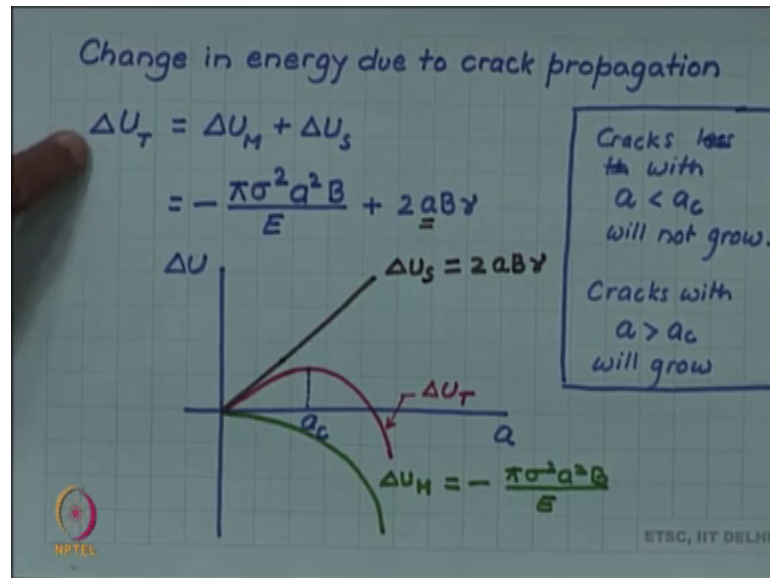 Change in energy due to crack propagation
ΔU_T = ΔU_M + ΔU_S
= - πσ²a²B/E + 2aBγ
Cracks less
th with
a < a_c
will not grow.
Cracks with
a > a_c
will grow
ΔU
ΔU_S = 2aBγ
ΔU_T
a_c
a
ΔU_M = - πσ²a²B/E
NPTEL
ETSC, IIT DELHI